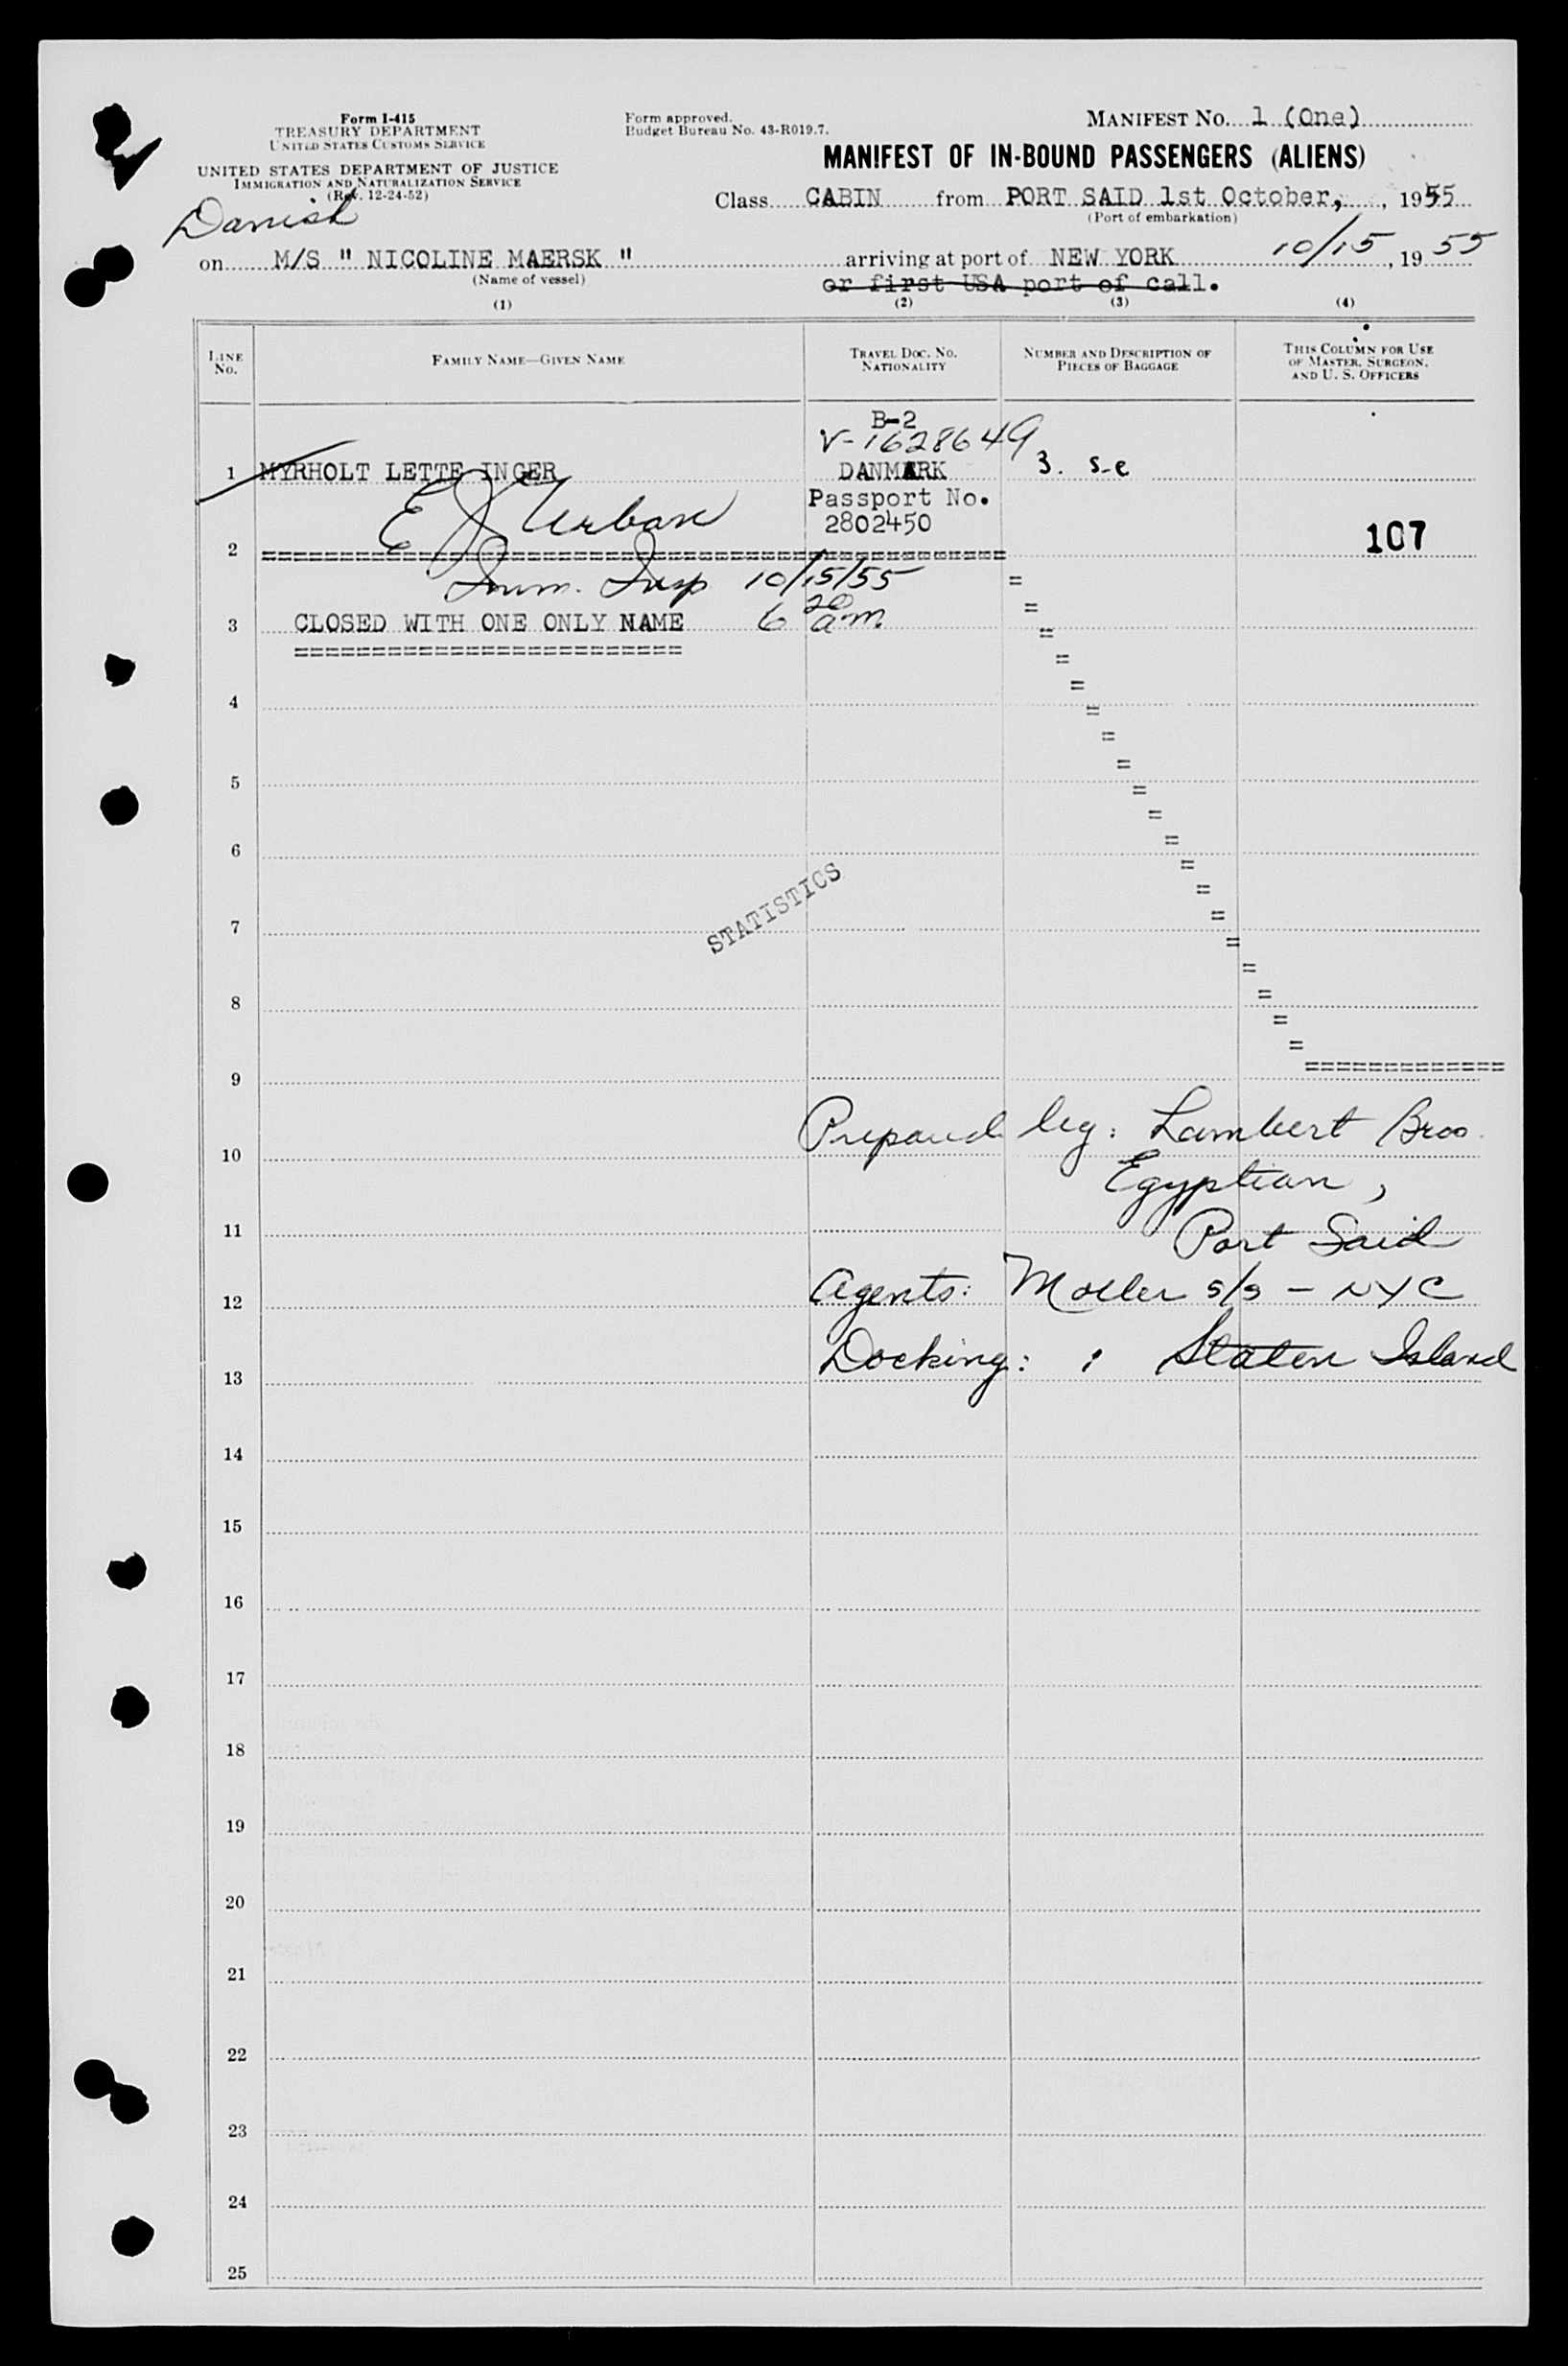 Form I-415
TREASURY DEPARTMENT
UNITED STATES CUSTOMS SERVICE
UNITED STATES DEPARTMENT OF JUSTICE
IMMIGRATION AND NATURALIZATION SERVICE
(Rev. 12-24-52)
Form approved.
Budget Bureau No. 43-R019.7.
MANIFEST No. 1 (One)
MANIFEST OF IN-BOUND PASSENGERS (ALIENS)
Class CABIN from PORT SAID 1st October, , 1955
(Port of embarkation)
Danish
on M/S " NICOLINE MAERSK " arriving at port of NEW YORK 10/15, 1955
(Name of vessel)
or first USA port of call.
(1) (2) (3) (4)
LINE No.
FAMILY NAME—GIVEN NAME
TRAVEL DOC. NO. NATIONALITY
NUMBER AND DESCRIPTION OF PIECES OF BAGGAGE
THIS COLUMN FOR USE OF MASTER, SURGEON, AND U. S. OFFICERS
B-2
V-1628649
1 MYRHOLT LETTE INGER DANMARK 3. s-c
Passport No.
2802450
E J Urban
107
2 ================================================
Imm. Insp 10/15/55
3 CLOSED WITH ONE ONLY NAME 6 20 am
=========================
4
5
6
STATISTICS
7
8
9
Prepared by: Lambert Bros.
10
Egyptian,
11
Port Said
12 Agents: Moller s/s - NYC
13 Docking: : Staten Island
14
15
16
17
18
19
20
21
22
23
24
25